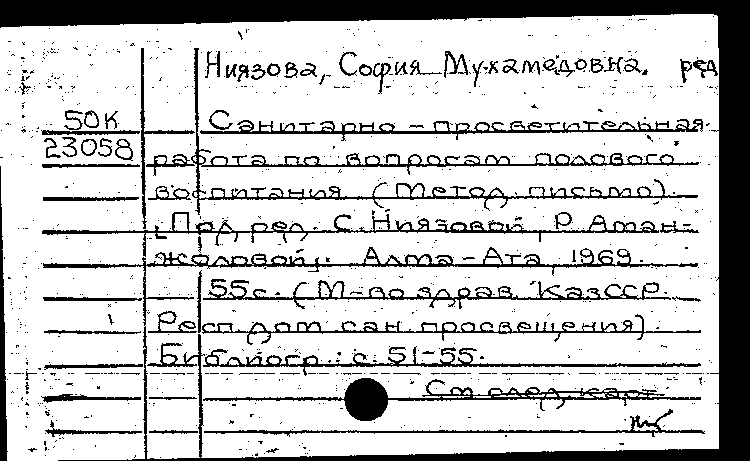 Ниязова, София Мухамедовна, ред
50К Санитарно-просветительная
23058 работа по вопросам полового
воспитания (Метод. письмо).
[Под ред. С. Ниязовой, Р. Аман-
жоловой]. Алма-Ата, 1969.
55 с. (М-во здрав. КазССР.
Респ. дом сан. просвещения).
Библиогр.: с. 51-55.
См след. карт.